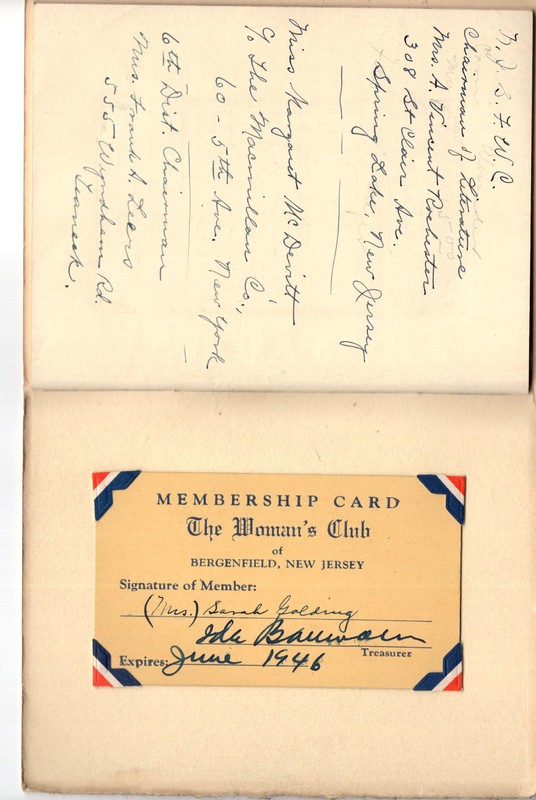 N. J. S. F. W. C.
Chairman of Literature
Mrs. A. Vincent Rochester
308 St Clair Ave.
Spring Lake, New Jersey
Miss Margaret McDevitt
c/o The Macmillan Co.,
60 - 5th Ave. New York
6th Dist. Chairman
Mrs. Frank A. Leers
555 Wyndham Rd.
Teaneck.
MEMBERSHIP CARD
The Woman's Club
of
BERGENFIELD, NEW JERSEY
Signature of Member:
(Mrs.) Sarah Golding
Ida
Treasurer
Expires: June 1946